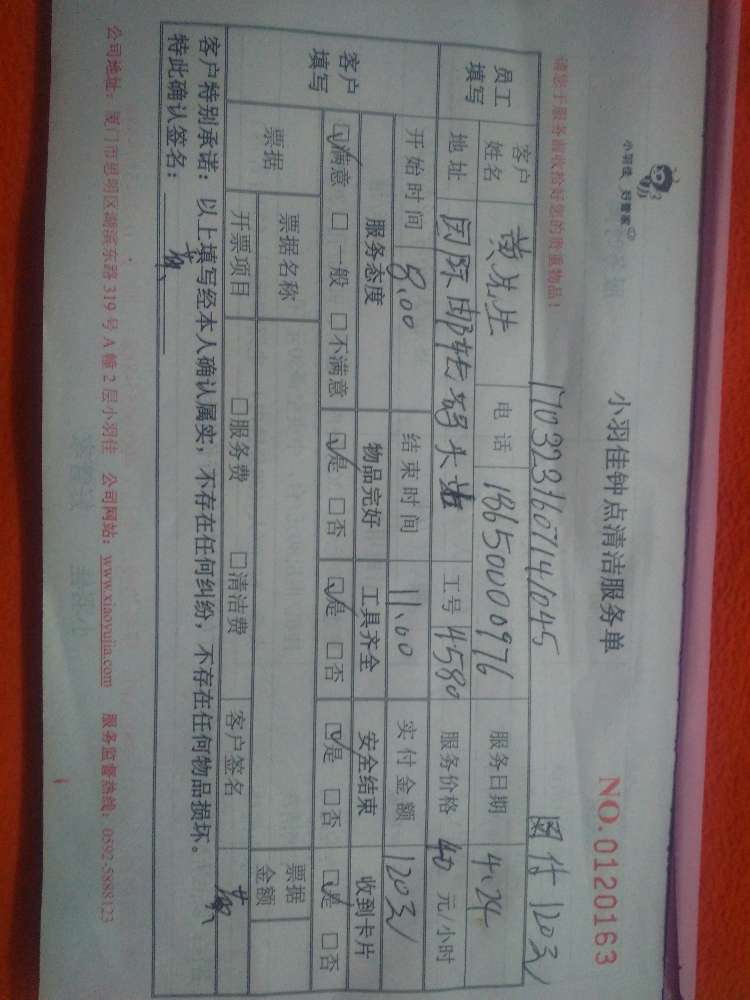 小羽佳 好管家
小羽佳钟点清洁服务单
NO.0120163
请您于服务前收拾好您的贵重物品！
1703231607141045
付120元
员工填写
客户姓名 黄先生 电话 18650000976 服务日期 4.24
地址 国际邮轮码头 工号 4580 服务价格 40 元/小时
开始时间 8.00 结束时间 11.00 实付金额 120元
客户填写
服务态度 物品完好 工具齐全 安全结束 收到卡片
☑满意 □一般 □不满意 ☑是 □否 ☑是 □否 ☑是 □否 ☑是 □否
票据 票据名称 票据金额
开票项目 □服务费 □清洁费 客户签名 黄
客户特别承诺：以上填写经本人确认属实，不存在任何纠纷，不存在任何物品损坏。
特此确认签名： 黄
公司地址：厦门市思明区湖滨东路319号A幢2层小羽佳 公司网站：www.xiaoyujia.com 服务监督热线：0592-5888123